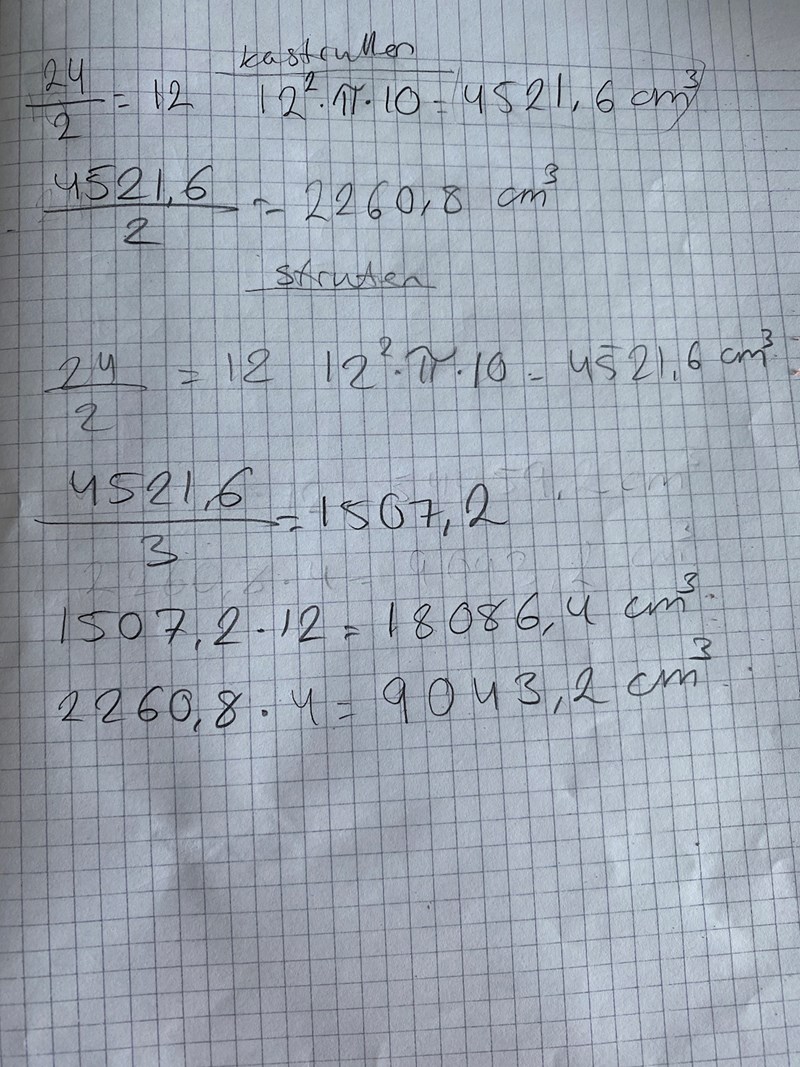 kastrullen
24/2 = 12 12²·π·10 = 4521,6 cm³
4521,6/2 = 2260,8 cm³
struten
24/2 = 12 12²·π·10 = 4521,6 cm³
4521,6/3 = 1507,2
1507,2·12 = 18086,4 cm³.
2260,8·4 = 9043,2 cm³.